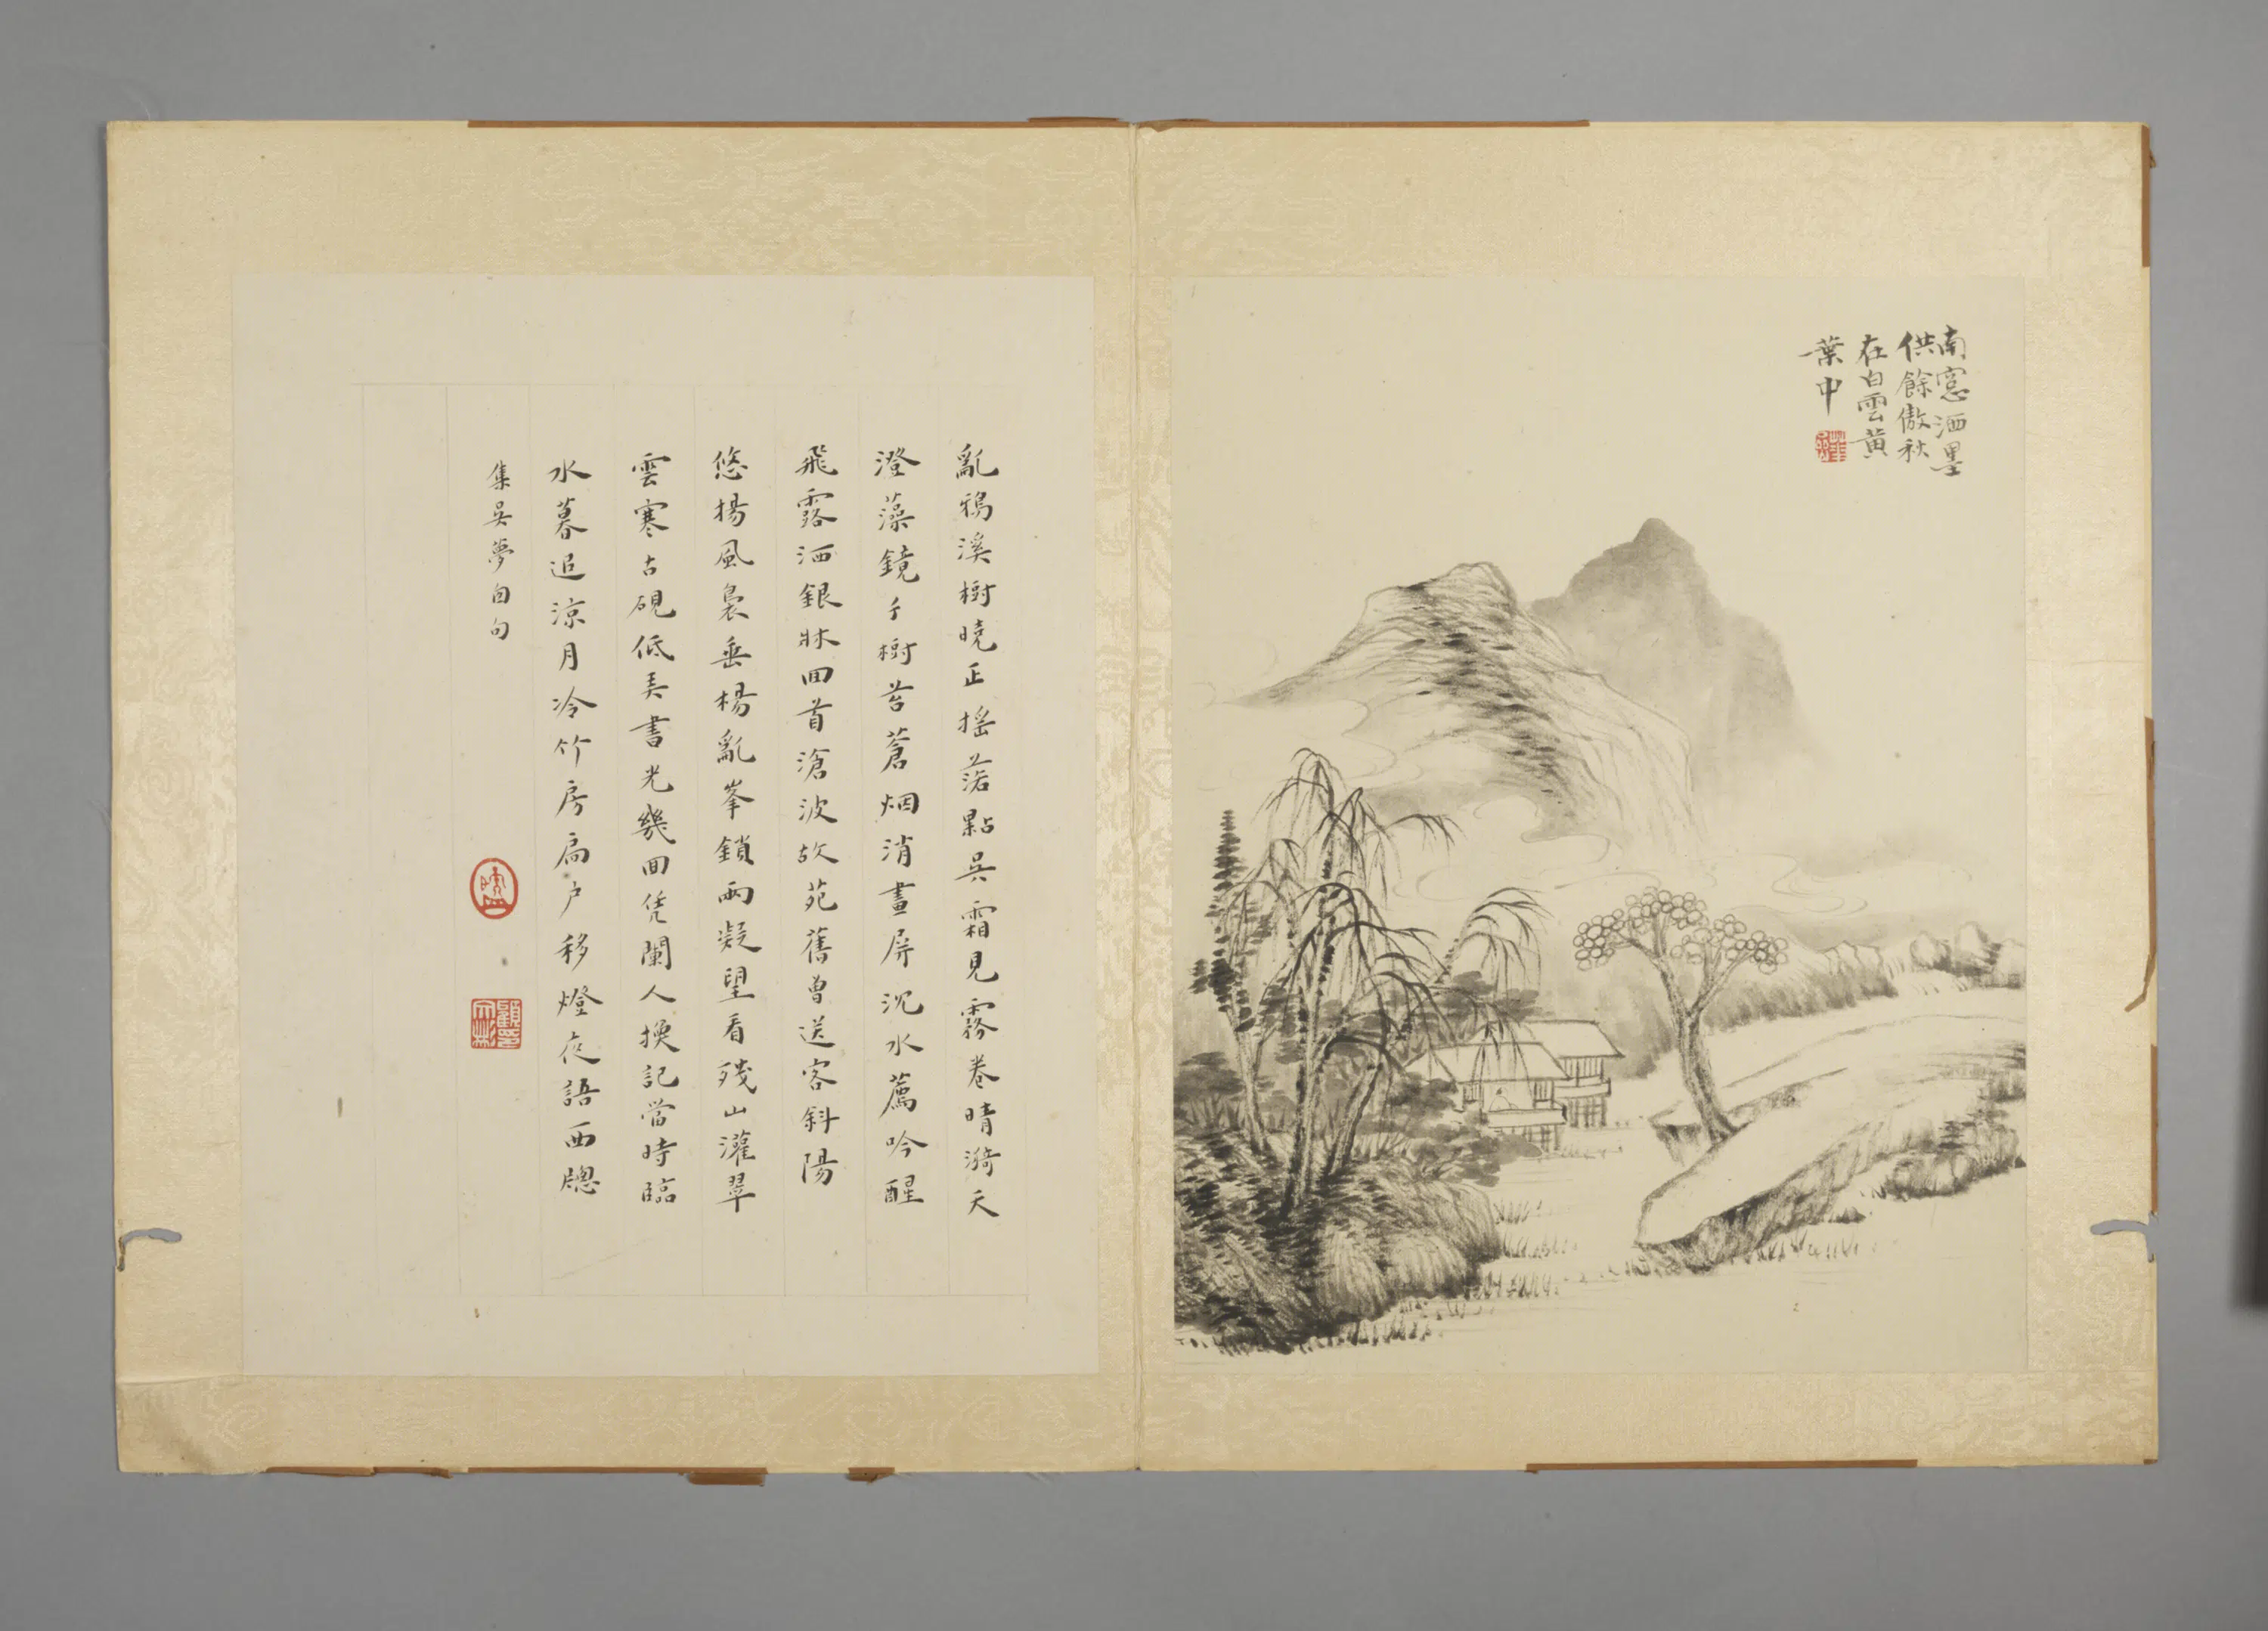 南窻洒墨
供餘傲秋
在白雲黄
葉中
亂鴉溪樹曉正搖落點吳霜見霧卷晴漪天
澄藻鏡千樹苔蒼烟消畫屏沉水薦吟醒
飛露洒銀牀回首滄波故苑舊曾送客斜陽
悠揚風裊垂楊亂峯鎖兩凝望看殘山灌翠
雲寒古硯低弄書光幾回凭闌人換記當時臨
水暮追涼月冷竹房扃户移燈夜語西牕
集吳夢囱句